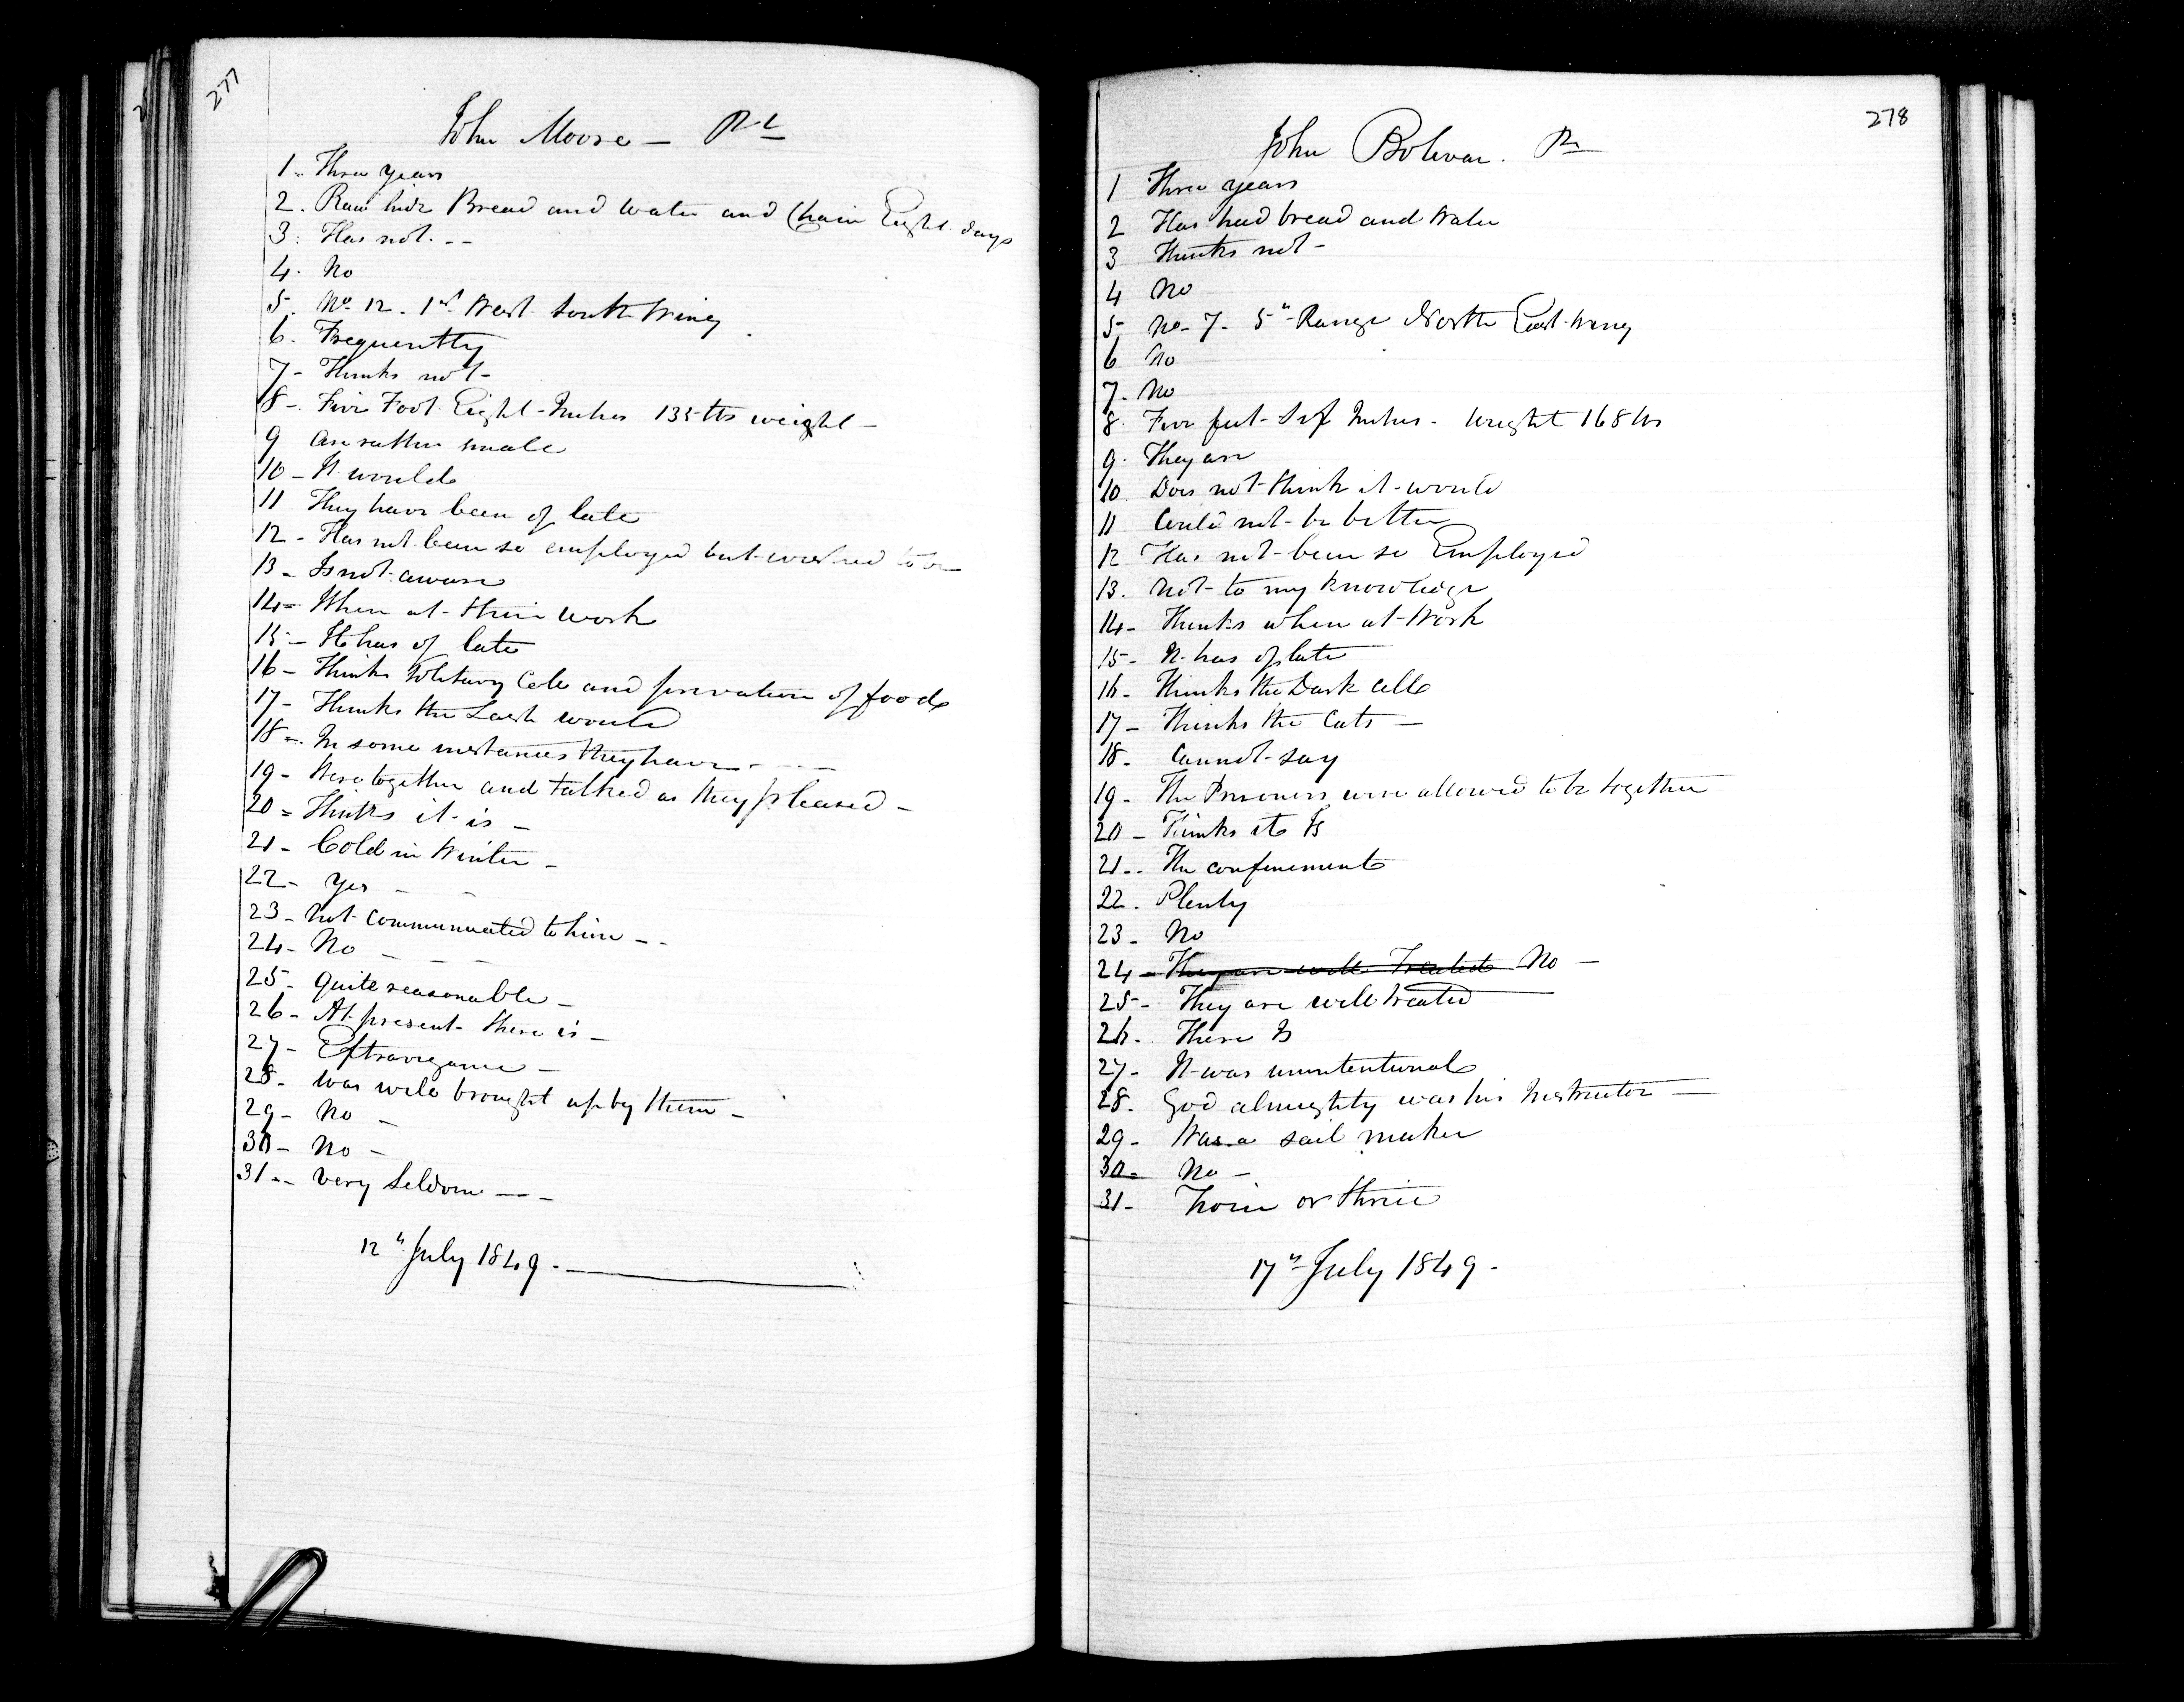 277
John Moore —
1. Three years
2. Raw hide Bread and Water and Chain Eight days
3. Has not. --
4. No
5. No. 12. 1st West South Wing
6. Frequently
7- Thinks not-
8-. Five Foot Eight-Inches 135 lbs weight —
9 Are rather small
10 - It would
11 They have been of late
12 - Has not been so employed but wished to
13 - Is not aware
14 = When at their work
15 - It has of late
16 - Thinks Solitary Cell and privation of food
17 - Thinks the Lash would
18 =. In some instances they have - - - -
19 - Were together and talked as they pleased -
20 = Thinks it is -
21 - Cold in Winter -
22 - Yes - -
23 - Not communicated to him - -
24 - No - - -
25 - quite reasonable -
26 - At present there is -
27 - Extravagance -
28 - was well brought up by them -
29 - No -
30 - No -
31 - - very seldom - - -
12th July 1849. -
278
John Bolivar.
1 Three years
2 Has had bread and Water
3 Thinks not -
4 No
5 No - 7 - 5th Range North East Wing
6 No
7. No
8. Five feet Six Inches - Weight 168 lbs
9. They are
10. Does not think it would
11 Could not be better
12 Has not been so Employed
13. Not to my knowledge
14 - Thinks when at Work
15 - It has of late
16 - Thinks the Dark Cell
17 - Thinks the Cats —
18 - Cannot say
19 - The Prisoners were allowed to be together
20 - Thinks it Is
21 - - The confinement
22 - Plenty
23 - No
24 - They are well Treated No —
25 - They are well treated
26 - There Is
27 - It was unintentional
28. God almighty was his Instructor —
29 - Was a sail maker
30 = No —
31 - Twice or thrice
17th July 1849 -